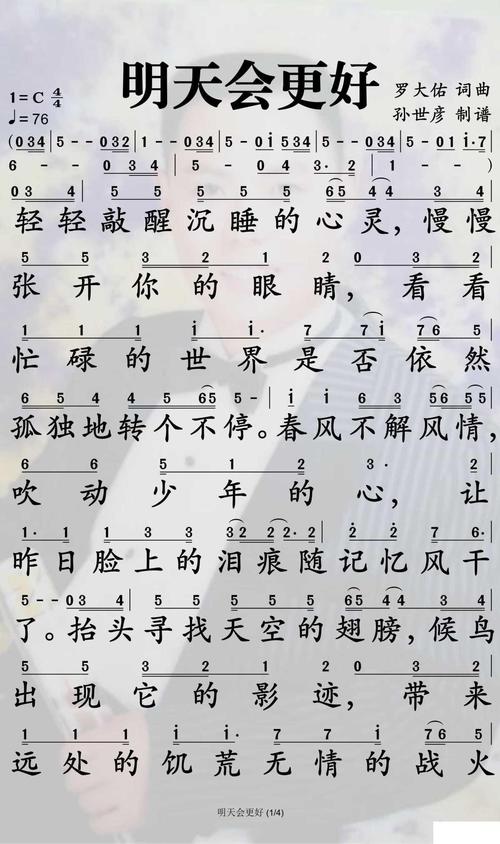 明天会更好
1=C 4/4
♩=76
罗大佑 词曲
孙世彦 制谱
(034 | 5 - - 032 | 1 - - 034 | 5 - - 0i 534 | 5 - 01 i·7 |
6 - - 034 | 5 - 04 3·2 | 1 - - )
034 | 5 5 5 5 65 44 3 4
轻轻敲醒沉睡的心灵，慢慢
5 5 3 2 1 2 0 3 2
张开你的眼睛，看看
1 1 1 i i· 7 71 i 76 5
忙碌的世界是否依然
6 5 4 4 5 65 5 - | i i 6 3 56 55
孤独地转个不停。春风不解风情，
6 6 5 1 2 3· 2
吹动少年的心，让
1· 1 1 3 3 32 2 2 1 2 2 2 7 6·
昨日脸上的泪痕随记忆风干
5 - 03 4 5 5 5 5 65 44 3 4
了。抬头寻找天空的翅膀，候鸟
5 5 3 2 1 2 0 3 2
出现它的影迹，带来
1 1 1 i i· 7 7 i 76 5
远处的饥荒无情的战火
明天会更好 (1/4)